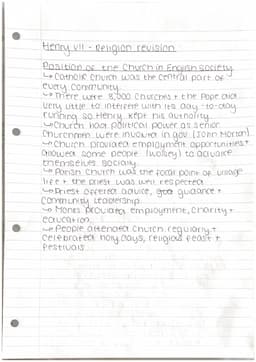 Henry VII - Religion revision
Position of the Church in English society
↳ Catholic Church was the central part of
every community.
↳ There were 8,000 churches + the Pope did
very little to interfere with its day-to-day
running so Henry kept his authority.
↳ Church had political power as senior
Churchmen were involved in gov. (John Morton).
↳ Church provided employment opportunities +
allowed some people (Wolsey) to advance
themselves socially.
↳ Parish Church was the focal point of village
life + the priest was well respected
↳ Priest offered advice, guidance +
community leadership.
↳ Monks provided employment, charity +
education.
↳ People attended church regularly +
celebrated holy days, religious feast +
festivals